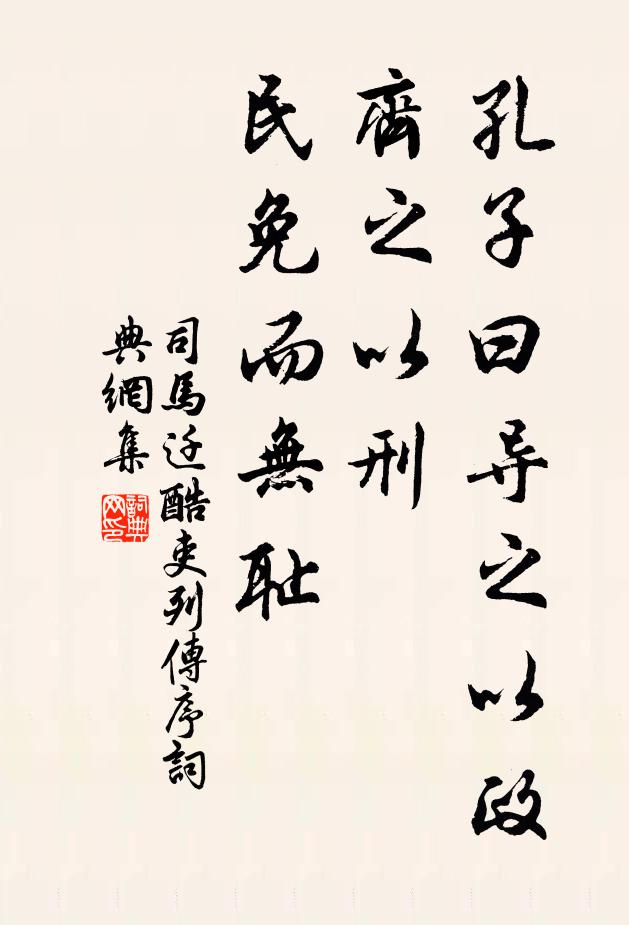 孔子曰导之以政
齊之以刑
民免而無耻
司馬迁酷吏列傳序詞
典網集
詞典
网印